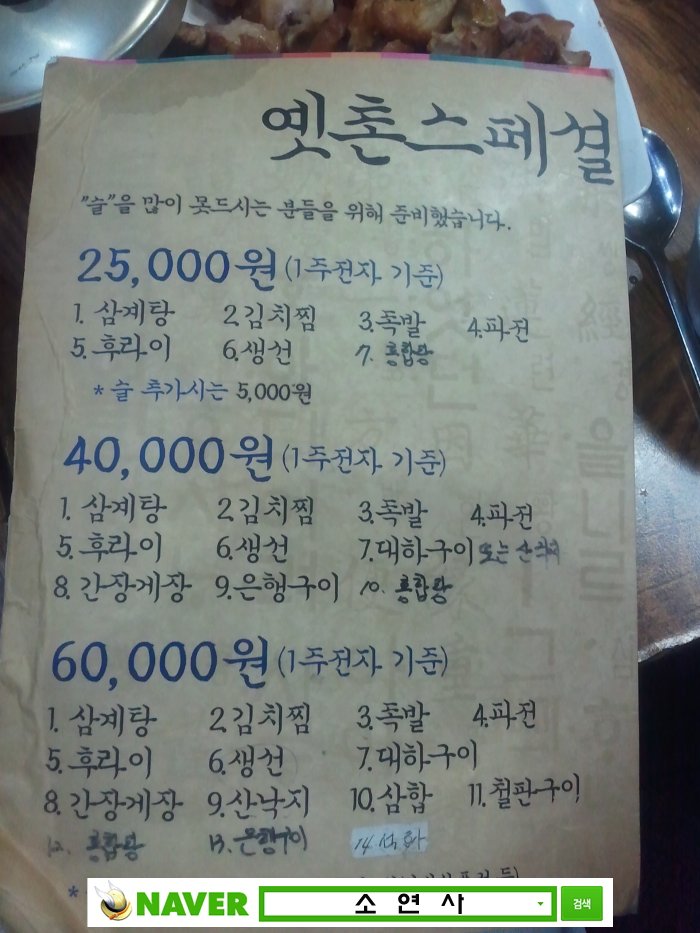 옛촌스페셜
"술"을 많이 못드시는 분들을 위해 준비했습니다.
25,000원 (1주전자 기준)
1. 삼계탕 2.김치찜 3.족발 4.파전
5.후라이 6.생선 7. 홍합탕
* 술 추가시는 5,000원
40,000원 (1주전자 기준)
1. 삼계탕 2.김치찜 3.족발 4.파전
5.후라이 6.생선 7.대하구이 또는 산낙지
8.간장게장 9.은행구이 10. 홍합탕
60,000원 (1주전자 기준)
1. 삼계탕 2.김치찜 3.족발 4.파전
5.후라이 6.생선 7.대하구이
8.간장게장 9.산낙지 10.삼합 11.철판구이
12. 홍합탕 13. 은행구이 14.석화
*
NAVER 소연사 검색